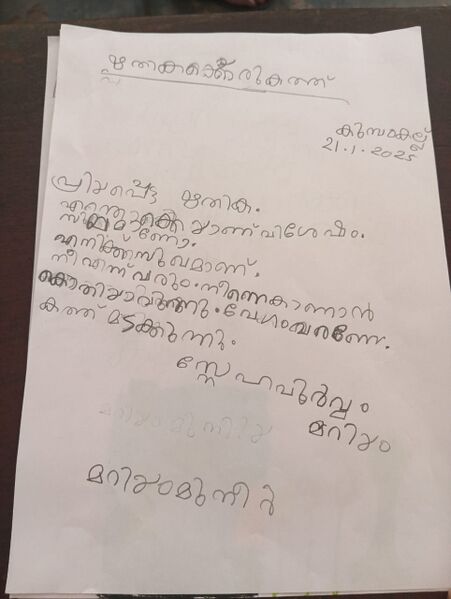 ഋതികക്കൊരു കത്ത്
കുമ്പംകല്ല്
21.1.2025
പ്രിയപ്പെട്ട ഋതിക.
എന്തൊക്കെയാണ് വിശേഷം.
സുഖമാണോ.
എനിക്ക് സുഖമാണ്.
നീ എന്ന് വരും. നിന്നെ കാണാൻ
കൊതിയാവുന്നു. വേഗം വരണേ.
കത്ത് മടക്കുന്നു.
സ്നേഹപൂർവ്വം
മറിയം
മറിയം മുനീർ
മറിയം മുനീർ